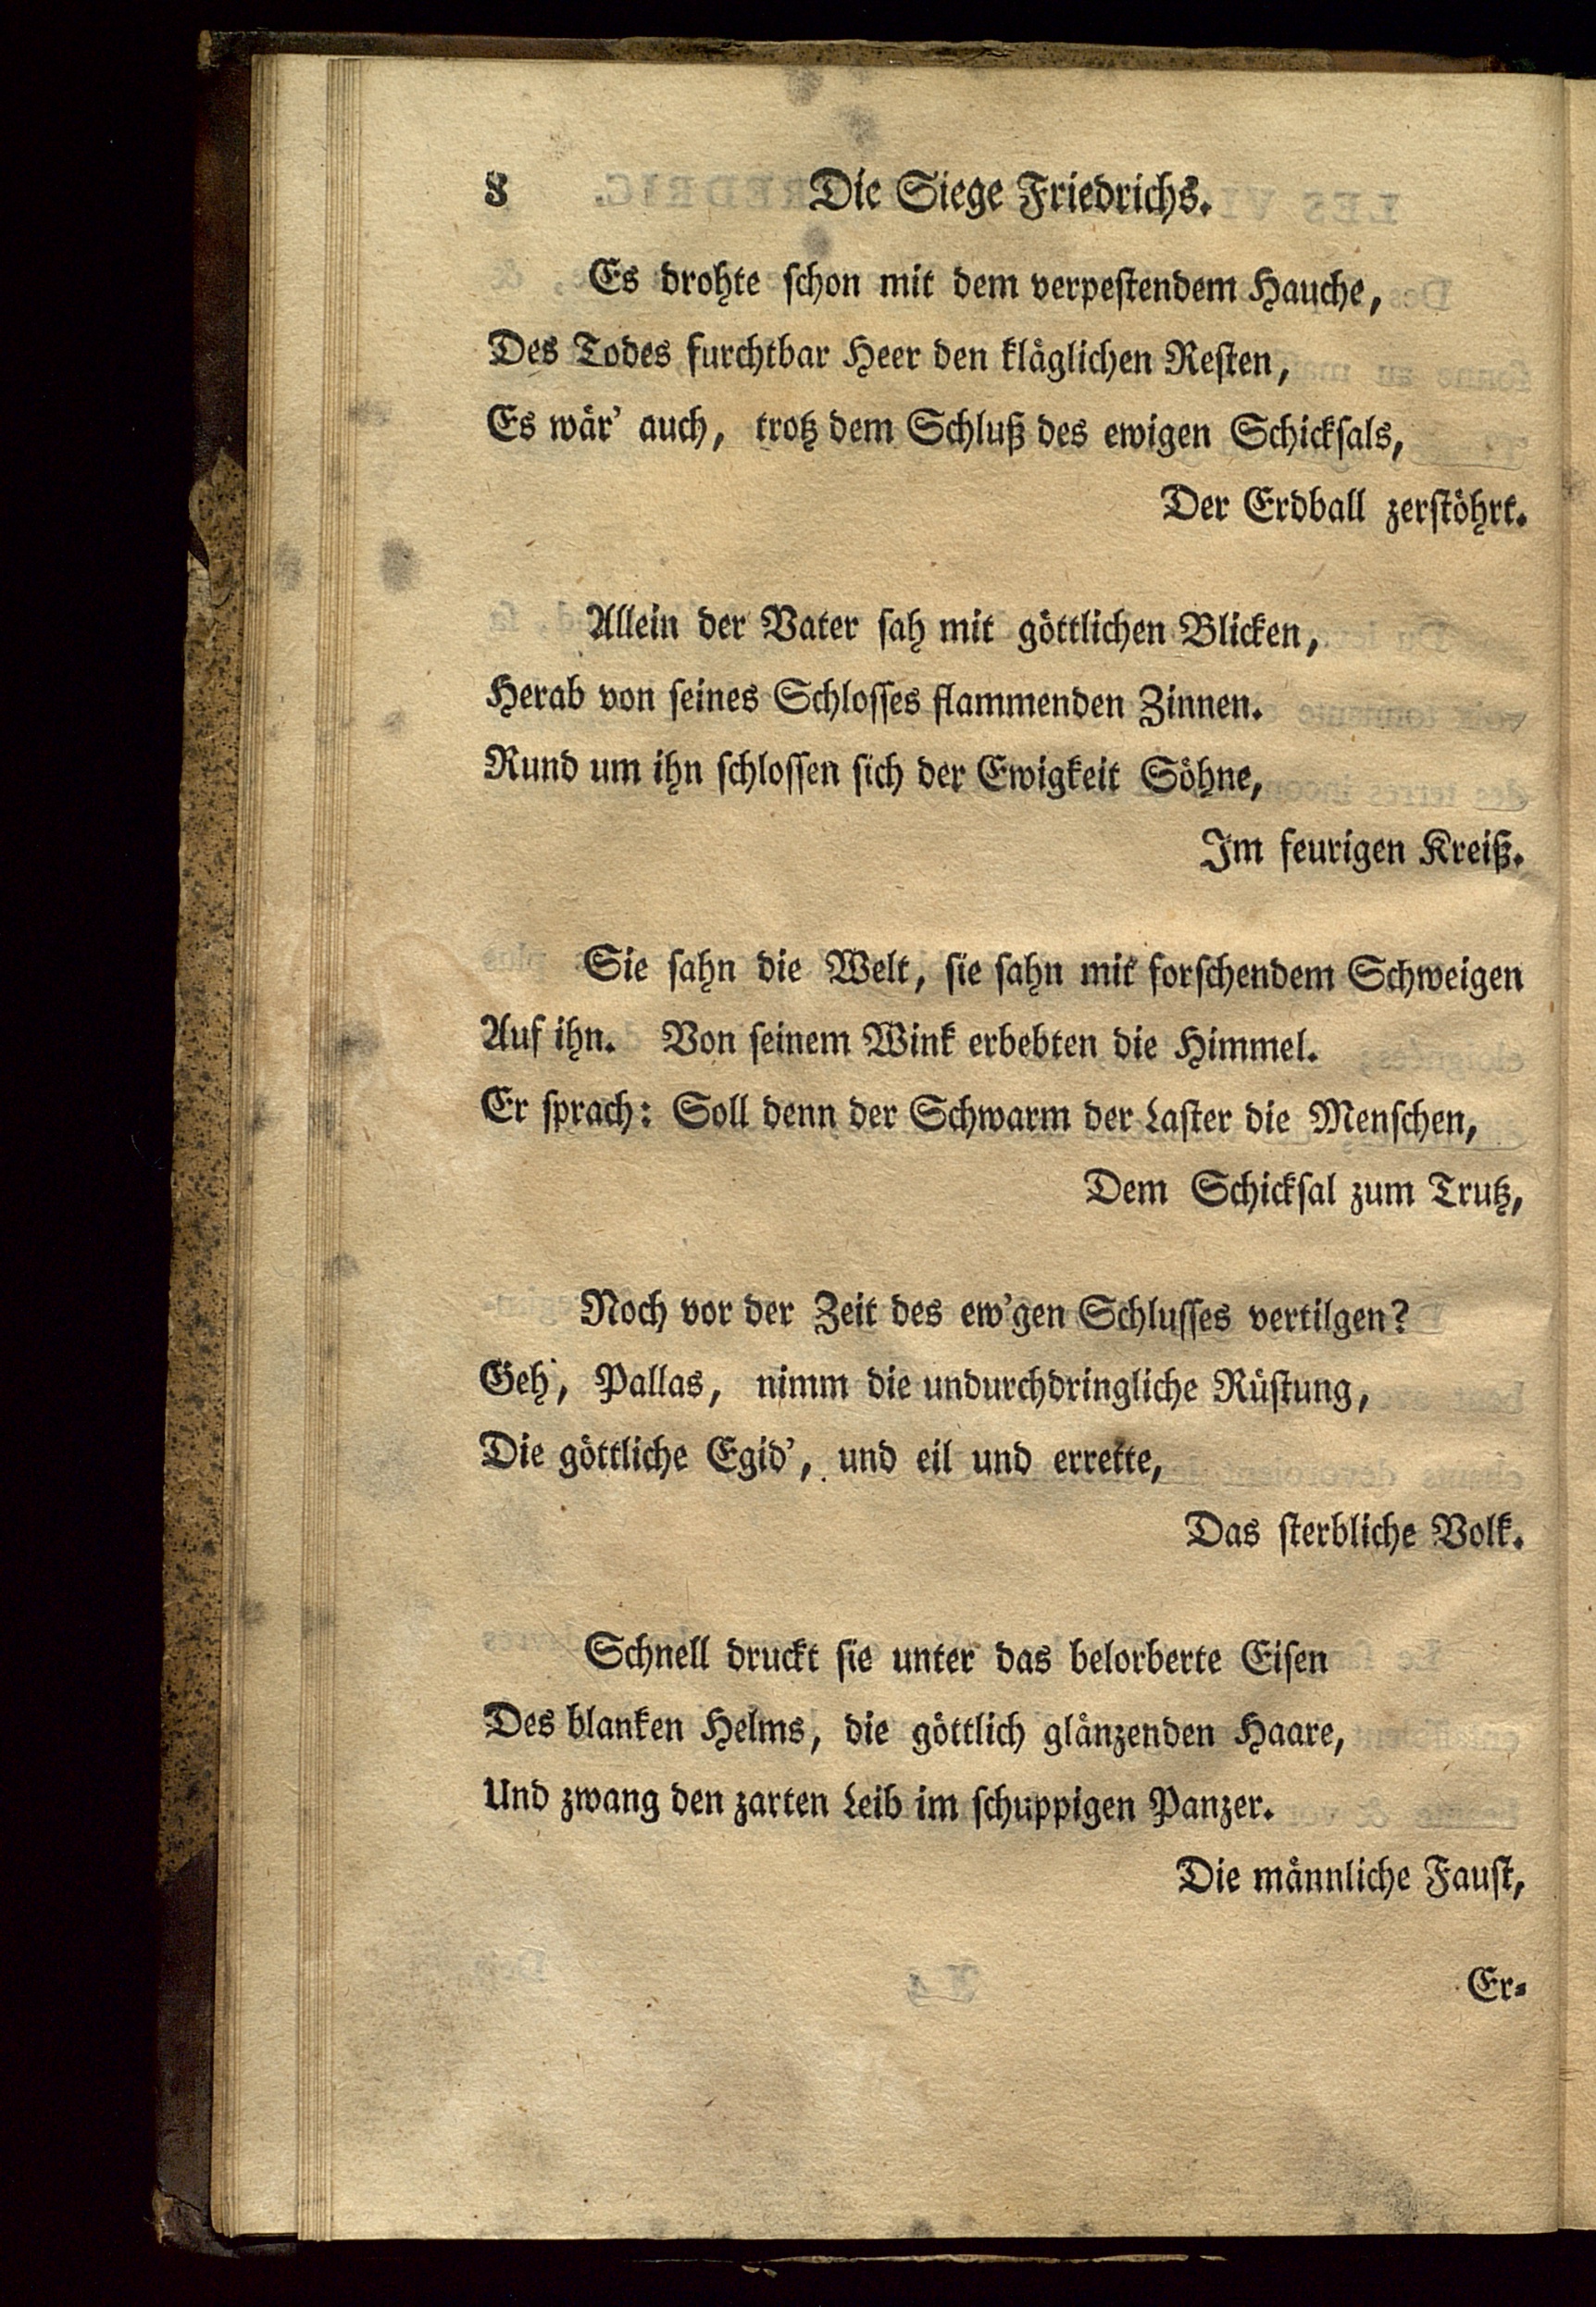 8 Die Siege Friedrichs.
Es drohte schon mit dem verpestendem Hauche,
Des Todes furchtbar Heer den kläglichen Resten,
Es wär' auch, trotz dem Schluß des ewigen Schicksals,
Der Erdball zerstöhrt.
Allein der Vater sah mit göttlichen Blicken,
Herab von seines Schlosses flammenden Zinnen.
Rund um ihn schlossen sich der Ewigkeit Söhne,
Im feurigen Kreiß.
Sie sahn die Welt, sie sahn mit forschendem Schweigen
Auf ihn. Von seinem Wink erbebten die Himmel.
Er sprach: Soll denn der Schwarm der Laster die Menschen,
Dem Schicksal zum Trutz,
Noch vor der Zeit des ew'gen Schlusses vertilgen?
Geh', Pallas, nimm die undurchdringliche Rüstung,
Die göttliche Egid', und eil und errette,
Das sterbliche Volk.
Schnell druckt sie unter das belorberte Eisen
Des blanken Helms, die göttlich glänzenden Haare,
Und zwang den zarten Leib im schuppigen Panzer.
Die männliche Faust,
Er-